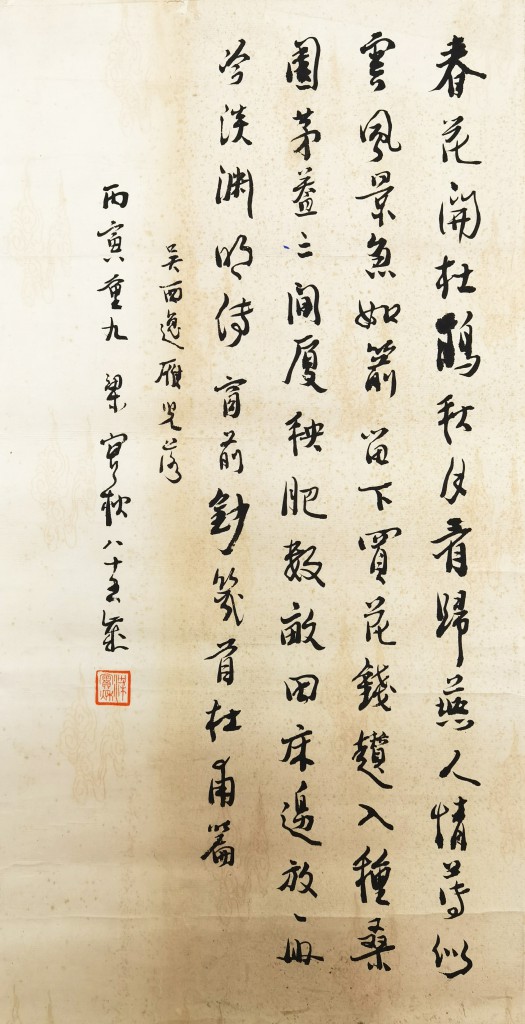 春花聞杜鵑秋月看歸燕人情薄似
雲風景急如箭留下買花錢趲入種桑
園茅蓋三間厦秧肥數畝田床邊放一冊
冷淡淵明傳窗前鈔幾首杜甫篇
吳西逸雁兒落
丙寅重九 梁實秋八十五歲